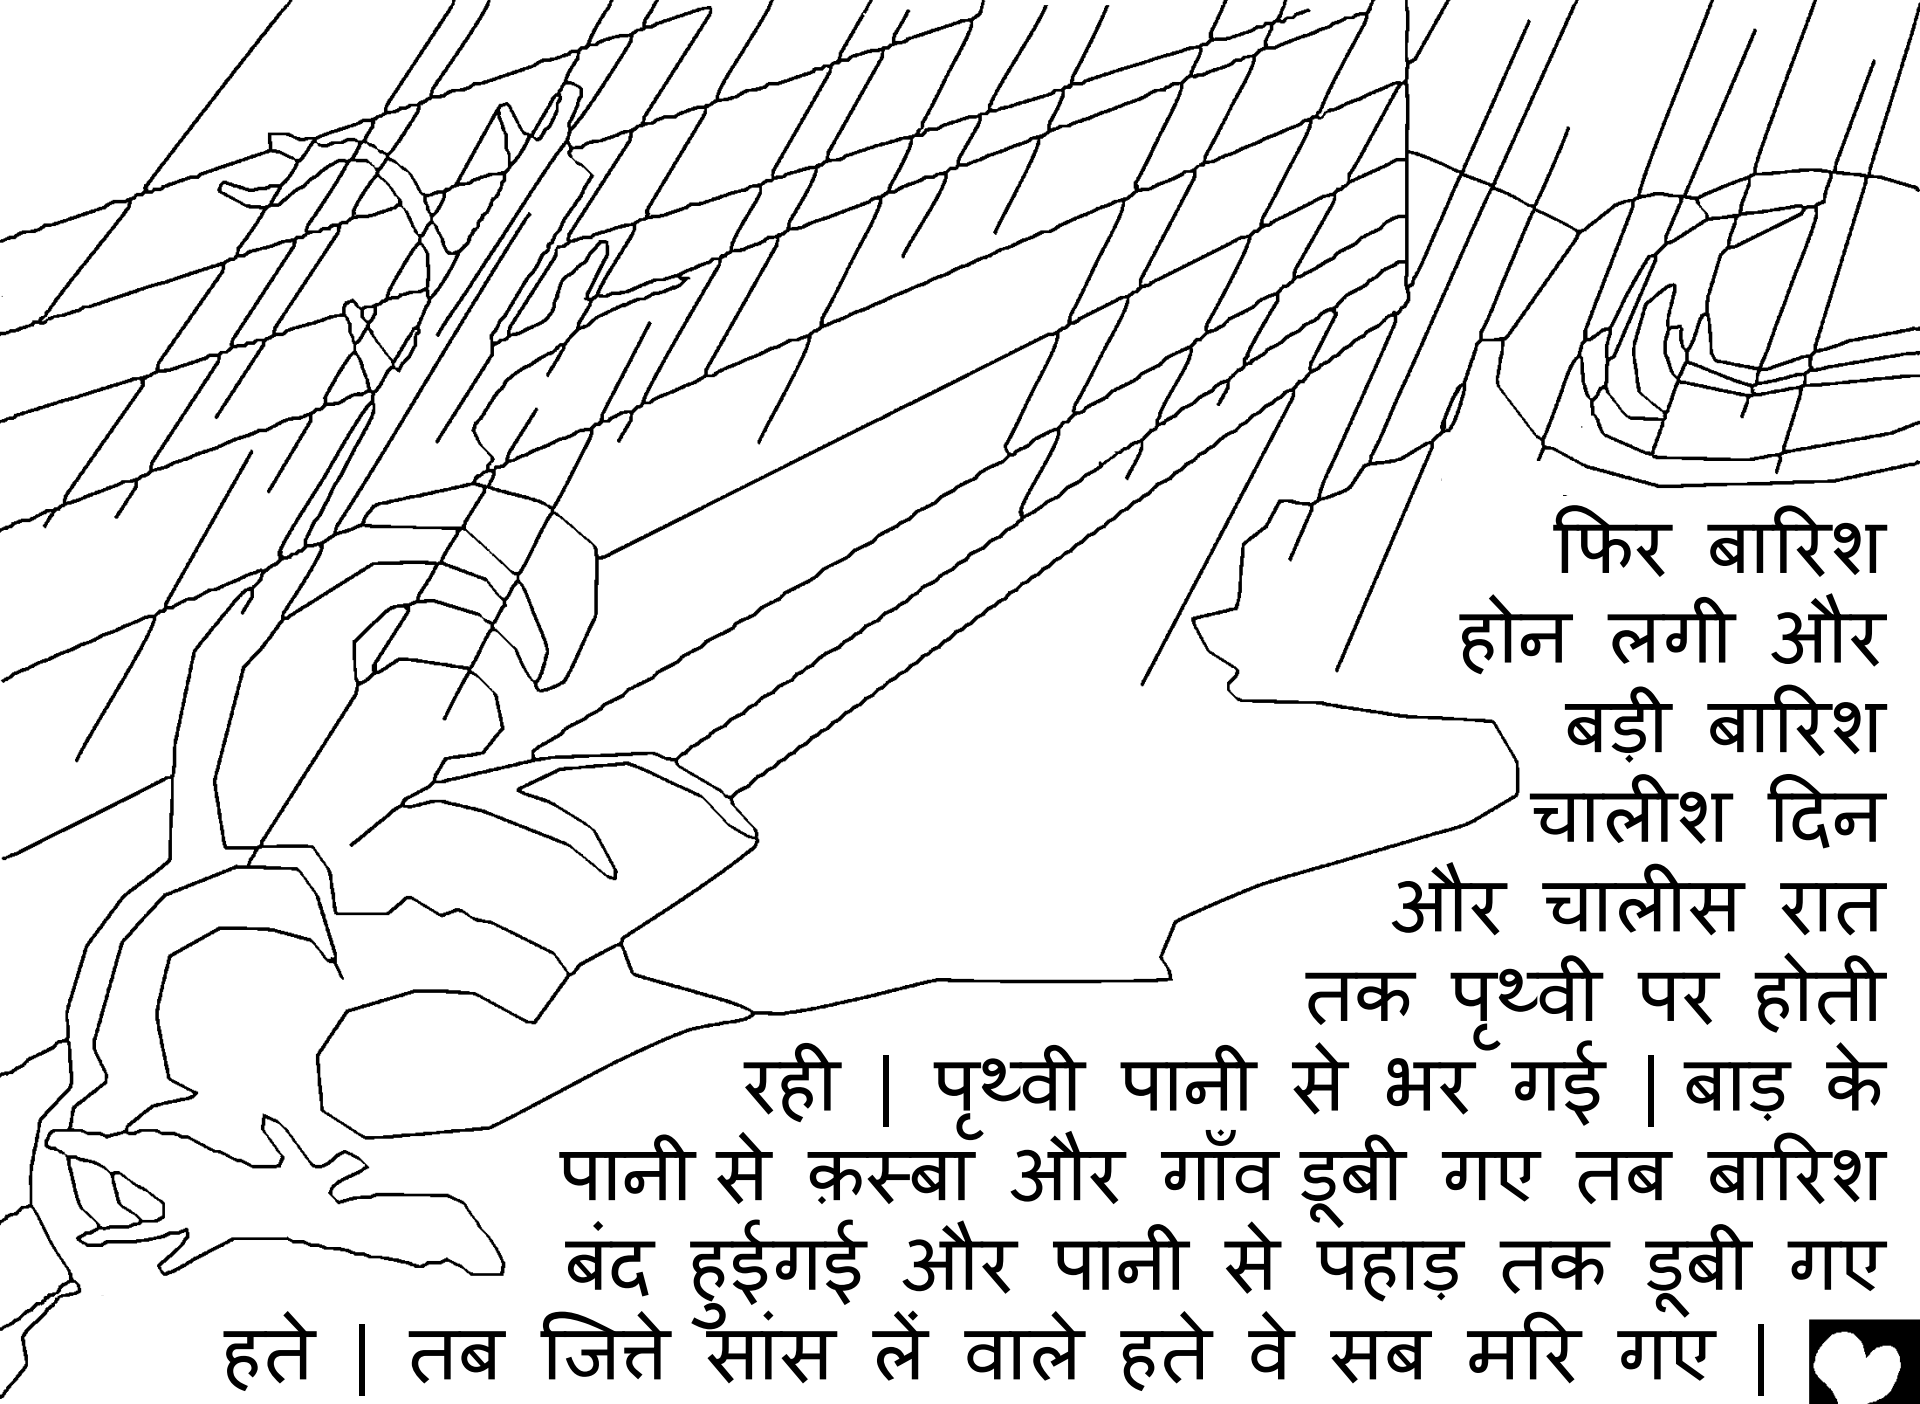 फिर बारिश
होन लगी और
बड़ी बारिश
चालीश दिन
और चालीस रात
तक पृथ्वी पर होती
रही | पृथ्वी पानी से भर गई | बाड़ के
पानी से क़स्बा और गाँव डूबी गए तब बारिश
बंद हुईगई और पानी से पहाड़ तक डूबी गए
हते | तब जित्ते सांस लें वाले हते वे सब मरि गए |